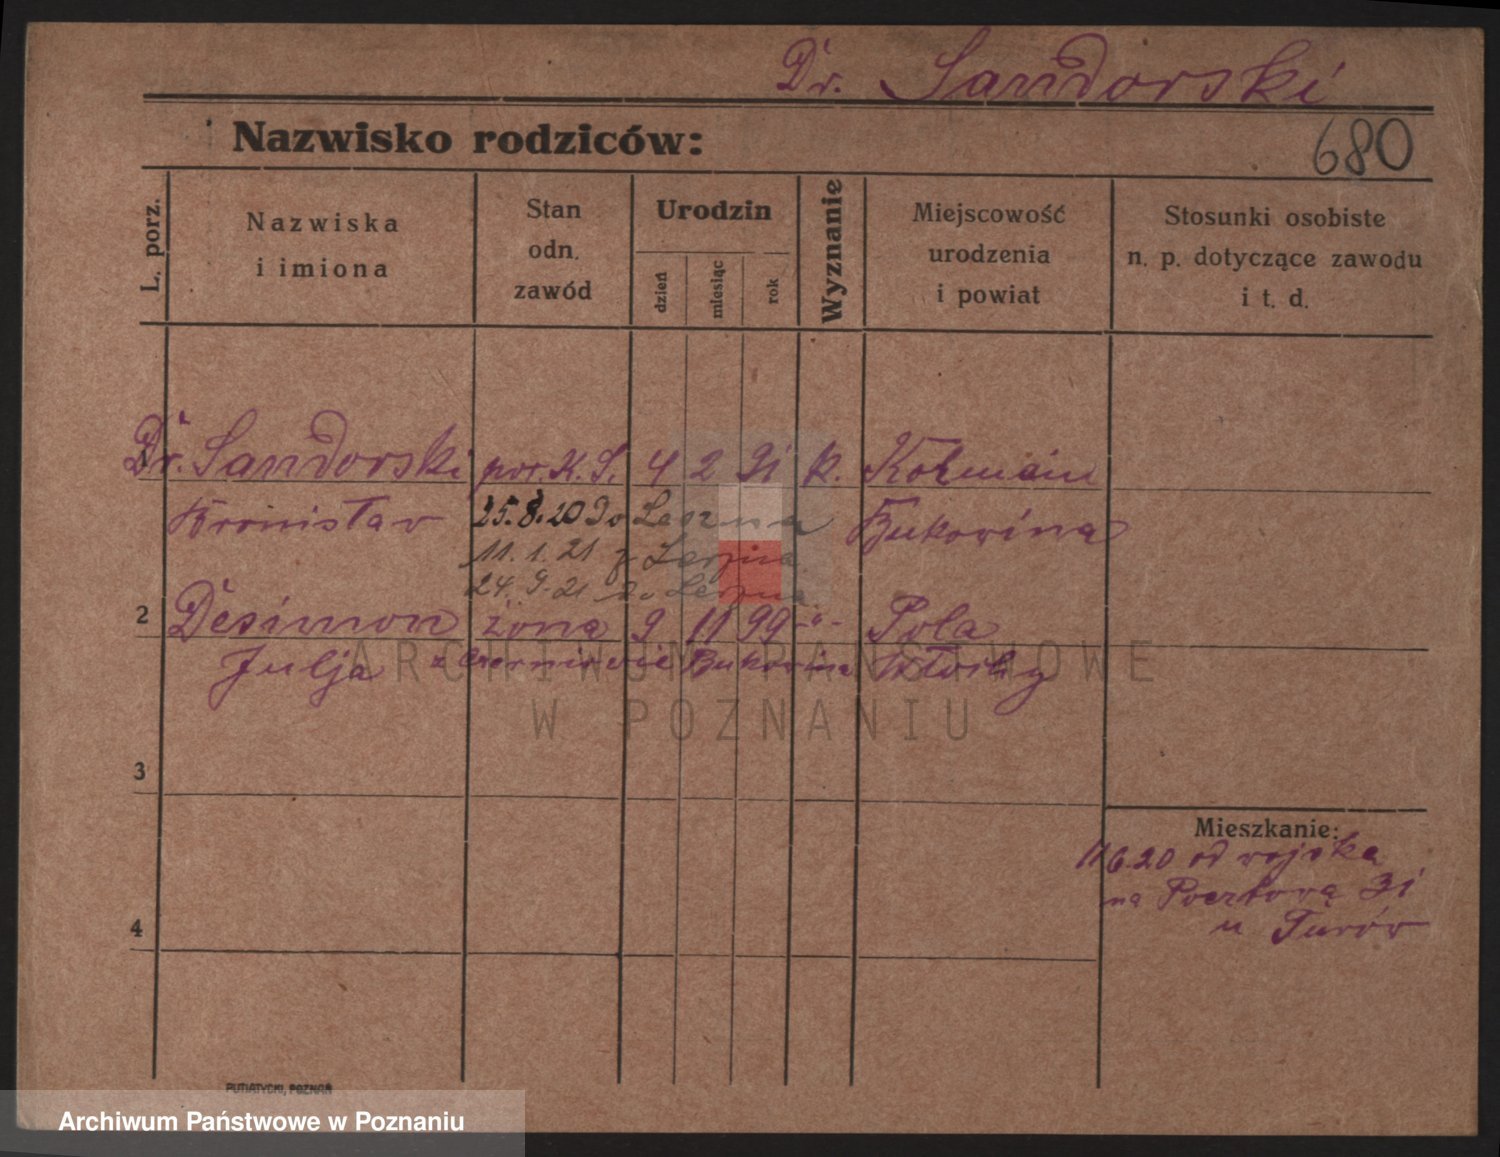 Dr. Sandorski
Nazwisko rodziców:
680
L. porz.
Nazwiska
i imiona
Stan
odn.
zawód
Urodzin
dzień
miesiąc
rok
Wyznanie
Miejscowość
urodzenia
i powiat
Stosunki osobiste
n. p. dotyczące zawodu
i t. d.
1 Dr. Sandorski por. K. S. 4 2 91 k. Kotzmain
Bronisław 25.8.20 do Leszna Bukowina
11.1.21 z Leszna
24.9.21 do Leszna
2 Desimon żona 9 11 99 -"- Pola
Julja z Czerniowic Bukowina Włochy
3
4
Mieszkanie:
11 6.20 od wojska
na Pocztową 31
u Turów
ARCHIWUM PAŃSTWOWE
W POZNANIU
PUTIATYCKI, POZNAŃ
Archiwum Państwowe w Poznaniu